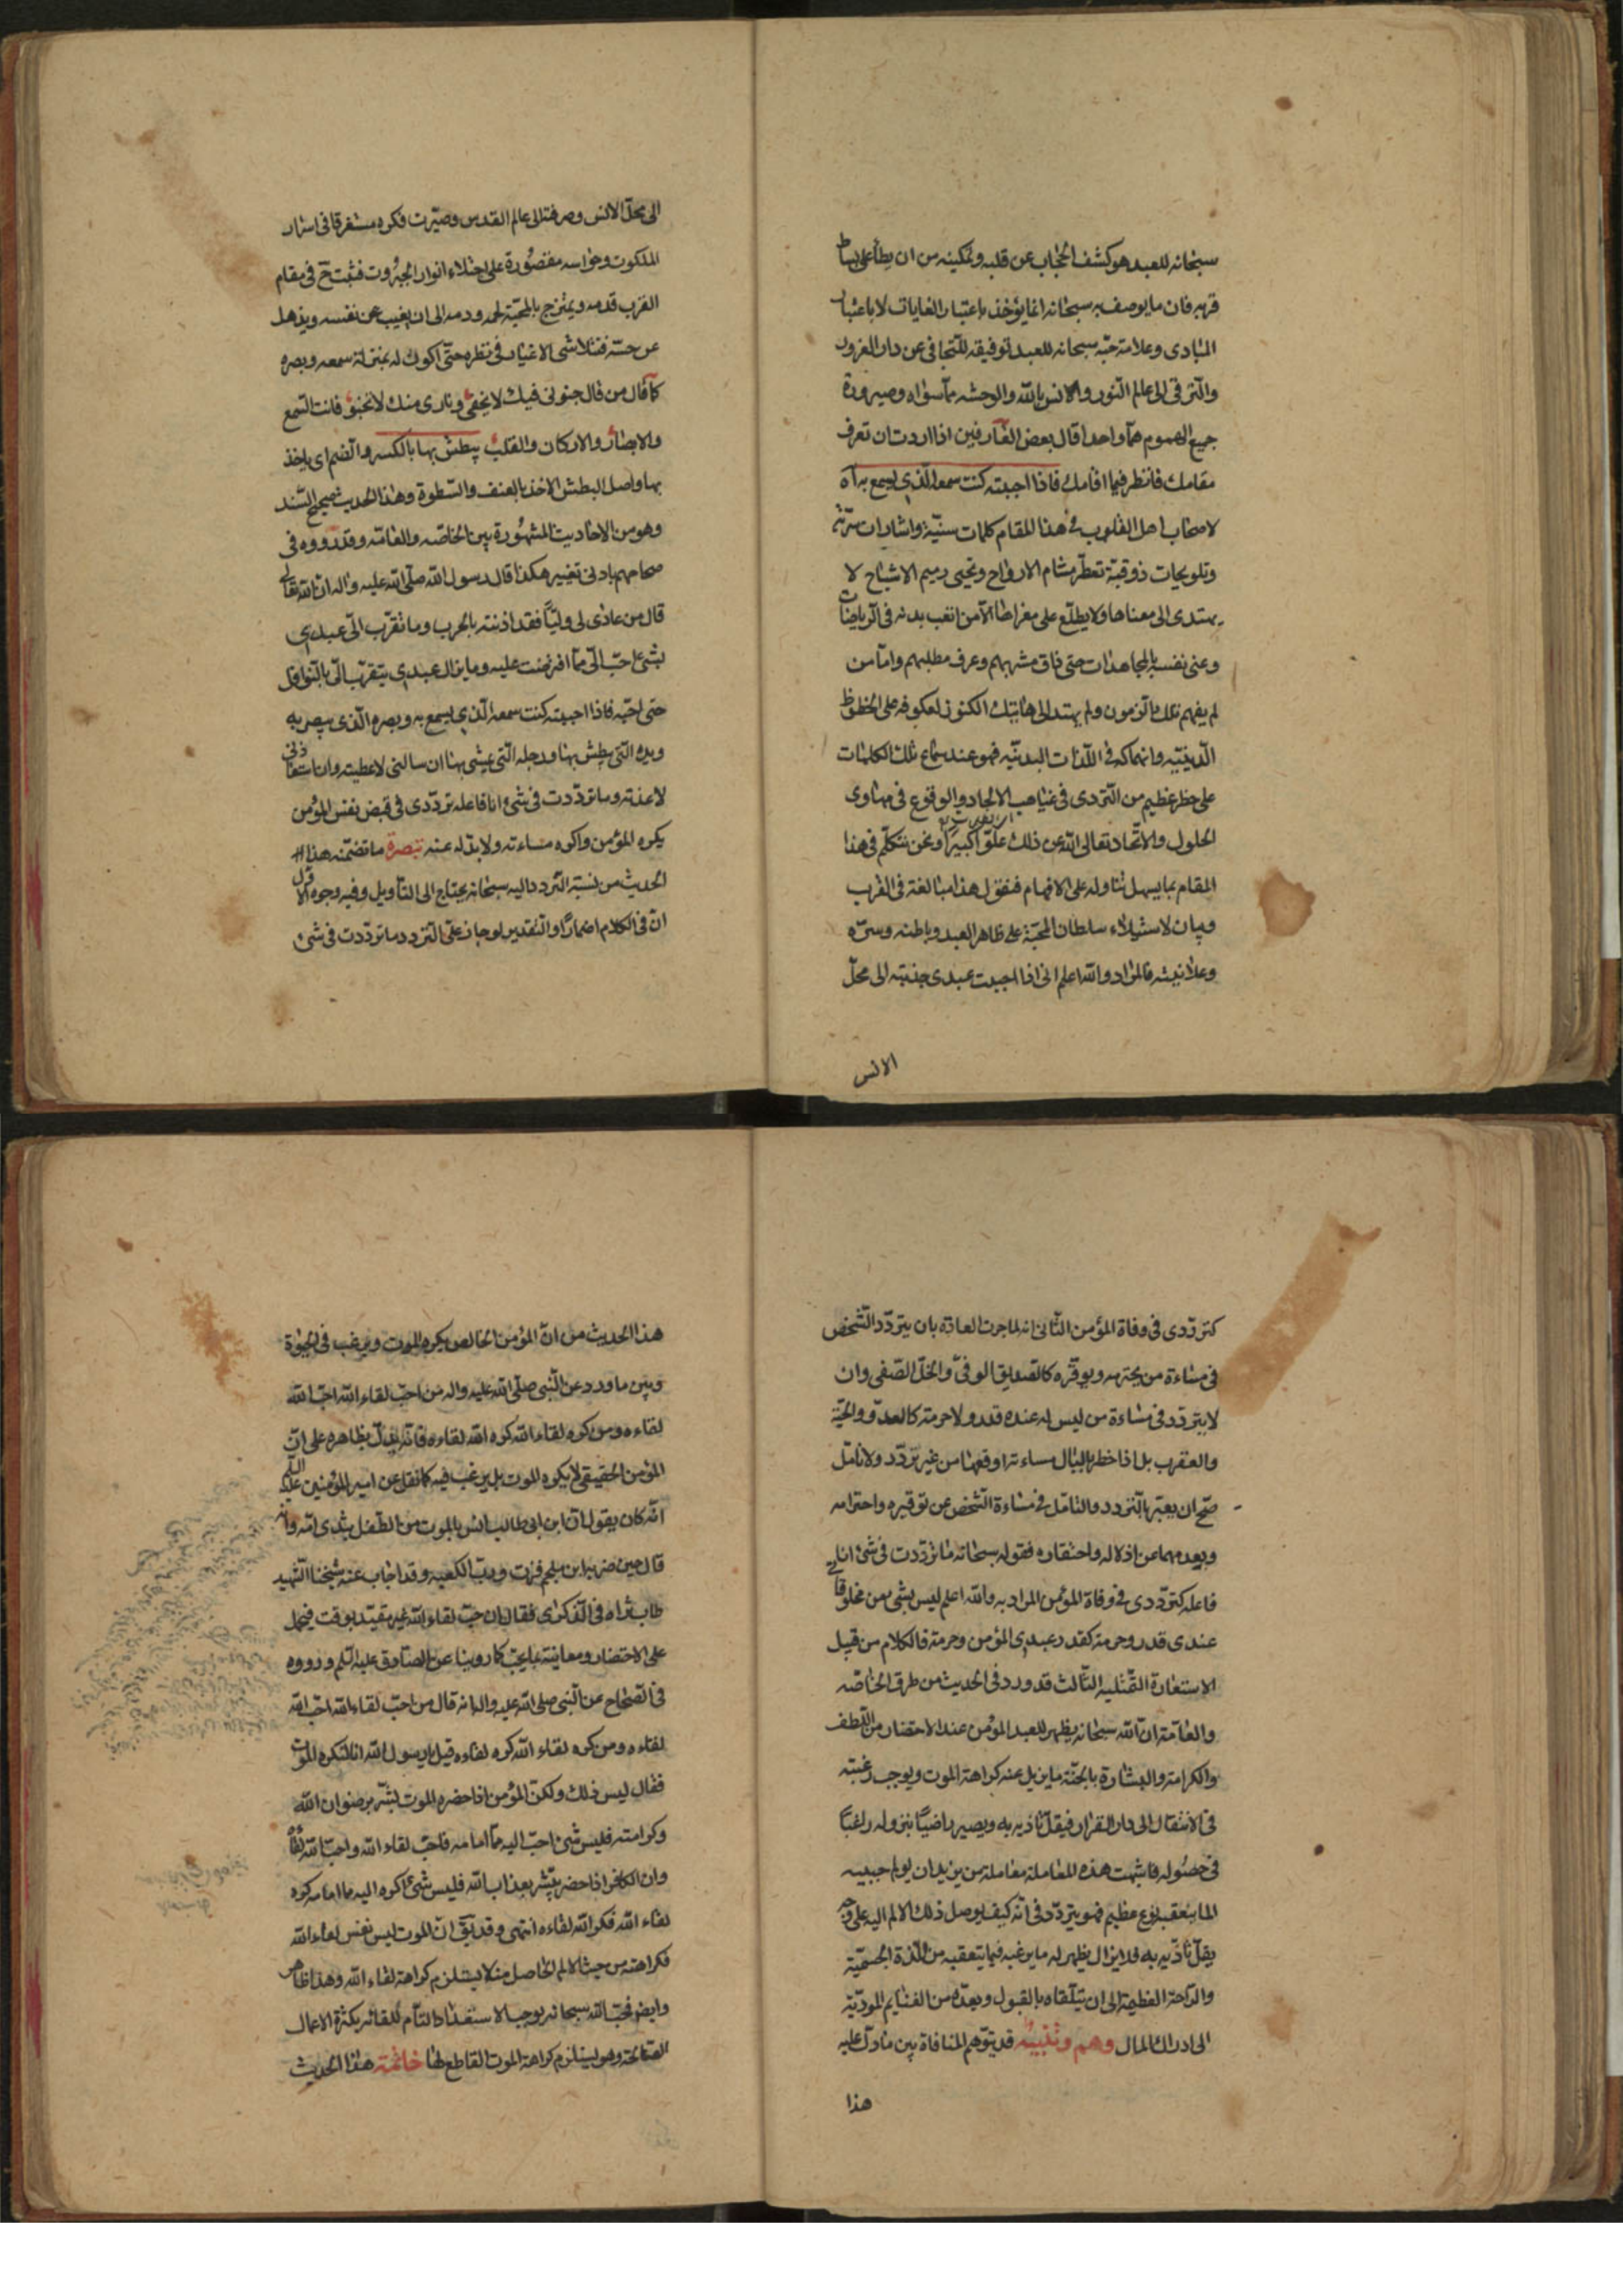 سبحانه للعبد هو كشف الحجاب عن قلبه وتمكينه من ان يطأ على بساط
قربه فان ما يوصف به سبحانه انما يؤخذ باعتبار الغايات لا باعتبار
المبادى وعلامة حبّه سبحانه للعبد توفيقه للتّجافى عن دار الغرور
والتّرقى الى عالم النّور والانس بالله والوحشه ممّا سواه وصيرورة
جميع الهموم همّا واحدا قال بعض العارفين اذا اردت ان تعرف
مقامك فانظر فيما اقامك فاذا احببته كنت سمعه الّذى يسمع به اه
لاصحاب اهل القلوب فى هذا المقام كلمات سنيّة واشارات سرّيّة
وتلويحات ذوقيّة تعطّر مشام الارواح وتحيى رميم الاشباح لا
يهتدى الى معناها ولا يطّلع على مغزاها الّا من اتعب بدنه فى الرياضات
وعنى نفسه بالمجاهدات حتى ذاق مشربهم وعرف مطلبهم وامّا من
لم يفهم تلك الرّموز ولم يهتد الى هاتيك الكنوز لعكوفه على الحظوظ
الدّنيّه وانهماكه فى اللّذات البدنيّه فهو عند سماع تلك الكلمات
على خطر عظيم من التّردى فى غياهب الالحاد والوقوع فى مهاوى
الحلول والاتّحاد تعالى الله عن ذلك علوّا كبيرا ونحن نتكلّم فى هذا
المقام بما يسهل تناوله على الافهام فنقول هذا مبالغة فى القرب
وبيان لاستيلاء سلطان المحبّة على ظاهر العبد وباطنه وسرّه
وعلانيته فالمراد والله اعلم انى اذا احببت عبدى جذبته الى محلّ
الانس
الى محلّ الانس وصرفته الى عالم القدس وصيّرت فكره مستغرقا فى اسرار
الملكوت وحواسه مقصورة على اجتلاء انوار الجبروت فتثبت ح فى مقام
القرب قدمه ويمتزج بالمحبّة لحمه ودمه الى ان يغيب عن نفسه ويذهل
عن حسّه فتتلاشى الاغيار فى نظره حتّى اكون له بمنزلة سمعه وبصره
كما قال من قال جنونى فيك لا يخفى ونارى منك لا تخبو فانت السّمع
والابصار والاركان والقلب يبطش بها بالكسر والضم اى ياخذ
بها واصل البطش الاخذ بالعنف والسّطوة وهذا الحديث صحيح السّند
وهو من الاحاديث المشهورة بين الخاصّه والعامّه وقد رووه فى
صحاحهم بادنى تغيير هكذا قال رسول الله صلّى الله عليه واله ان الله تعالى
قال من عادى لى وليّا فقد اذنته بالحرب وما تقرّب الىّ عبدى
بشئ احبّ الىّ ممّا افترضت عليه وما يزال عبدى يتقرّب الىّ بالنّوافل
حتى احبّه فاذا احببته كنت سمعه الّذى يسمع به وبصره الّذى يبصر به
ويده الّتى يبطش بها ورجله الّتى يمشى بها ان سالنى لاعطيته وان استعاذنى
لاعذته وما تردّدت فى شئ انا فاعله تردّدى فى قبض نفس المؤمن
يكره الموت واكره مساءته ولا بدّ له عنه تبصرة ما تضمّنه هذا
الحديث من نسبة التردد اليه سبحانه يحتاج الى التأويل وفيه وجوه الاوّل
انّ فى الكلام اضمارا والتّقدير لو جاز علىّ التردد ما تردّدت فى شئ
كتردّدى فى وفاة المؤمن الثّانى انه لما جرت العادة بان يتردّد الشّخص
فى مساءة من يحترمه ويوقّره كالصّديق الوفىّ والخلّ الصّفى وان
لا يتردّد فى مساءة من ليس له عنده قدر ولا حرمة كالعدوّ والحيّة
والعقرب بل اذا خطر بالبال مساءتها اوقعها من غير تردّد ولا تامّل
صحّ ان يعبّر بالتردد والتامّل فى مساءة الشّخص عن توقيره واحترامه
وبعدمهما عن اذلاله واحتقاره فقوله سبحانه ما تردّدت فى شئ انا
فاعله كتردّدى فى وفاة المؤمن المراد به والله اعلم ليس لشئ من مخلوقاتى
عندى قدر وحرمة كقدر عبدى المؤمن وحرمته فالكلام من قبيل
الاستعارة التّمثيليه الثّالث قد ورد فى الحديث من طرق الخاصّه
والعامّة انّ الله سبحانه يظهر للعبد المؤمن عند الاحتضار من اللّطف
والكرامة والبشارة بالجنّة ما يزيل عنه كراهة الموت ويوجب رغبته
فى الانتقال الى دار القرار فيقلّ تاذّيه به ويصير راضيا بنزوله راغبا
فى حصوله فاشبهت هذه المعاملة معاملة من يريد ان يولم حبيبه
الما يتعقبه نفع عظيم فهو يتردّد فى انّه كيف يوصل ذلك الالم اليه على وجه
يقلّ تاذّيه به فلا يزال يظهر له ما يرغبه فيما يتعقبه من اللّذة الجسميّة
والرّاحة العظيمة الى ان يتلقّاه بالقبول ويعدّه من الغنايم المودّية
الى ادراك المامول وهم وتنبيه قد يتوهّم المنافاة بين ما دلّ عليه
هذا
هذا الحديث من انّ المؤمن الخالص يكره الموت ويرغب فى الحيوة
وبين ما ورد عن النّبى صلّى الله عليه واله من احبّ لقاء الله احبّ الله
لقاءه ومن كره لقاء الله كره الله لقاءه فانّه يدلّ بظاهره على انّ
المؤمن الحقيقى لا يكره الموت بل يرغب فيه كما نقل عن امير المؤمنين عليه السلم
انّه كان يقول انّ ابن ابى طالب انس بالموت من الطّفل بثدى امّه وانه
قال حين ضربه ابن ملجم فزت وربّ الكعبه وقد اجاب عنه شيخنا الشّهيد
طاب ثراه فى الذّكرى فقال ان حبّ لقاء الله غير مقيّد بوقت فيحمل
على الاحتضار ومعاينة ما يحبّ كما روينا عن الصّادق عليه السّلم ورووه
فى الصّحاح عن النّبى صلى الله عليه واله انه قال من احبّ لقاء الله احبّ الله
لقاءه ومن كره لقاء الله كره لقاءه قيل يا رسول الله انا لنكره الموت
فقال ليس ذلك ولكنّ المؤمن اذا حضره الموت بشّر برضوان الله
وكرامته فليس شئ احبّ اليه ممّا امامه فاحبّ لقاء الله واحبّ الله لقاءه
وان الكافر اذا حضر بشّر بعذاب الله فليس شئ اكره اليه مما امامه كره
لقاء الله فكره الله لقاءه انتهى وقد يقّ انّ الموت ليس نفس لقاء الله
فكراهته من حيث الالم الحاصل منه لا يستلزم كراهة لقاء الله وهذا ظاهر
وايض فحبّ الله سبحانه يوجب الاستعداد التّام للقائه بكثرة الاعمال
الصّالحة وهو يستلزم كراهة الموت القاطع لها خاتمة هذا الحديث